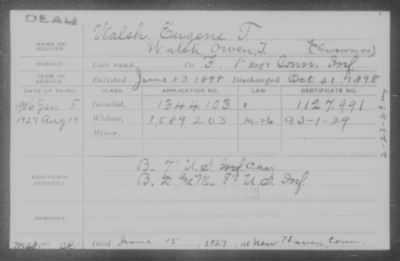 DEAD
Walsh, Eugene T.
NAME OF SOLDIER: Walsh, Owen, T. (known as)
SERVICE: Late rank, Co. F, 1 Reg't Conn. Inf
TERM OF SERVICE: Enlisted June 23, 1898 Discharged Oct 31, 1898
DATE OF FILING. CLASS. APPLICATION NO. LAW. CERTIFICATE NO.
Jan 5 Invalid, 1344103 1127,991
1927 Aug 19 Widow, 1,589,203 A3-1-29
Minor,
ADDITIONAL SERVICES: B. 7" U.S. Cav
B. D 8" U.S. Inf
REMARKS:
Died June 15, 1927, at New Haven, Conn.